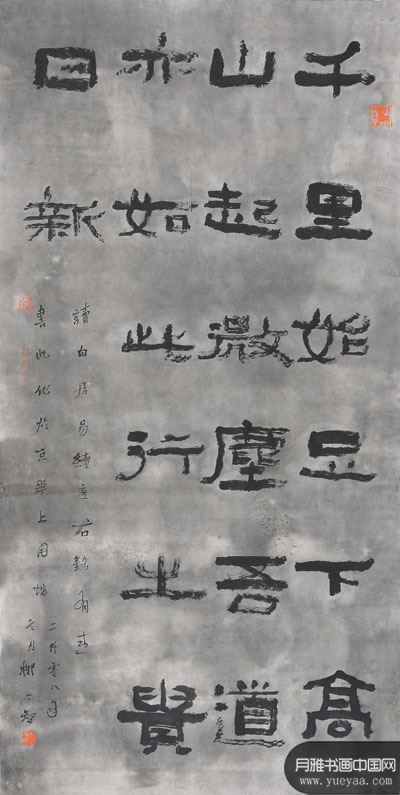 千里始足下高
山起微塵吾道
亦如此行之貴
日新
讀白居易續座右銘有
書此作於京華上園坊
零八年
冬月柳
月雅书画中国网
www.yueyaa.com